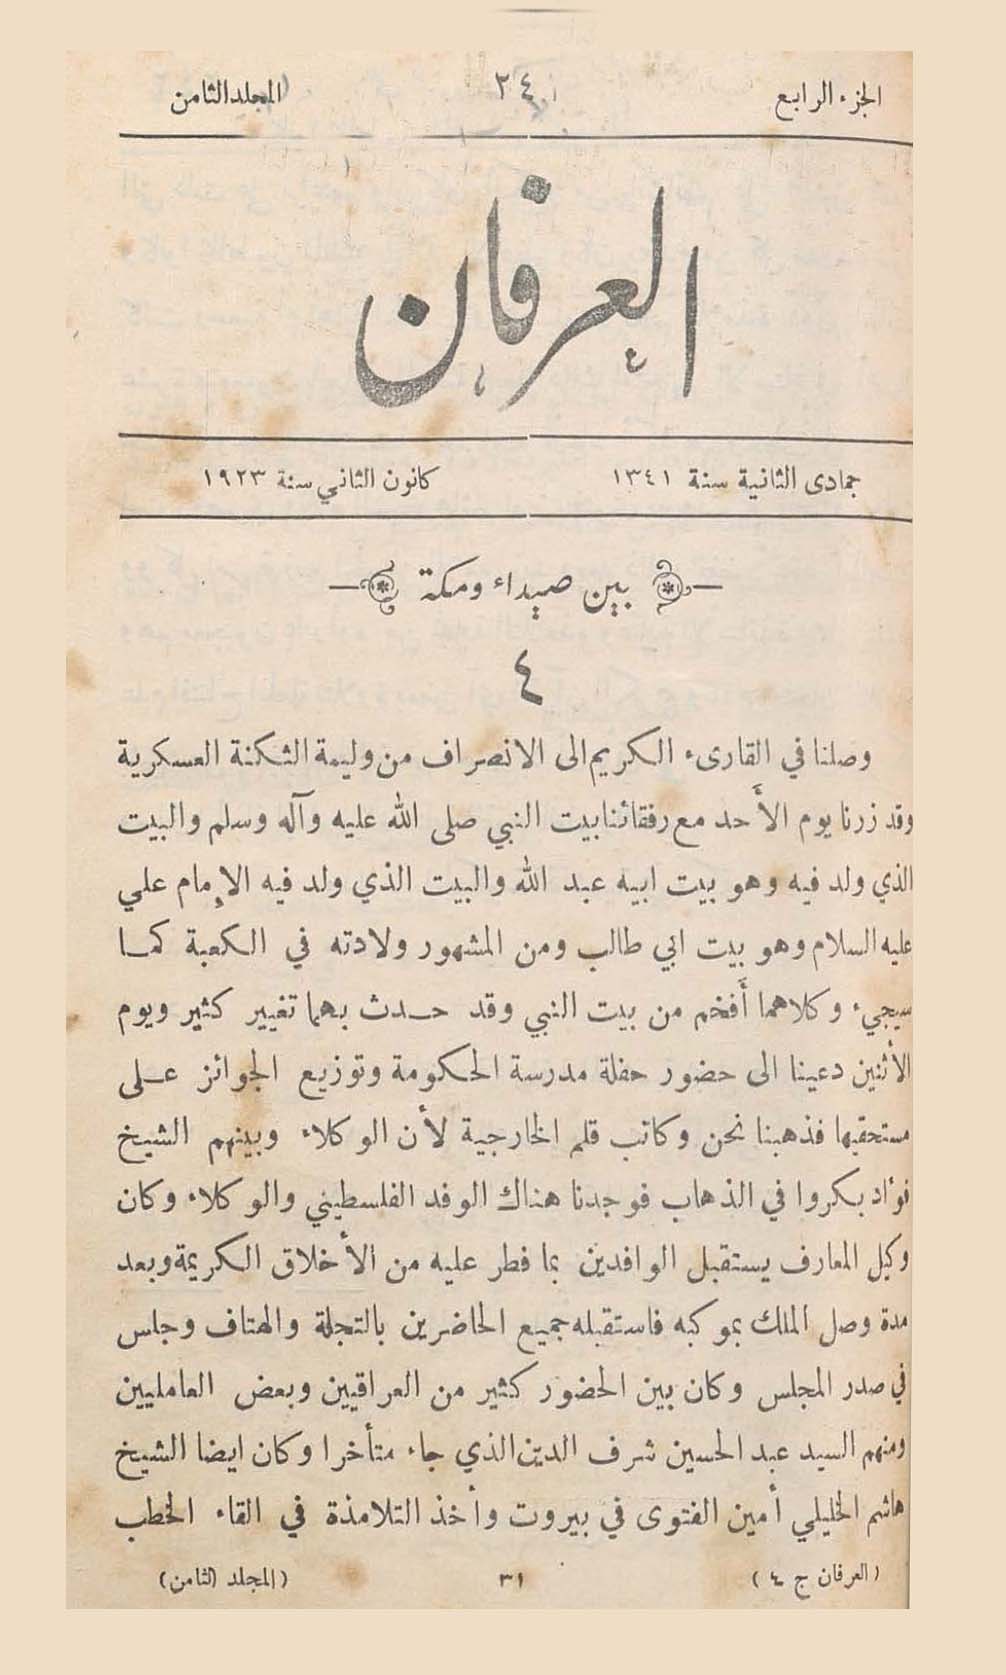 الجزء الرابع
المجلد الثامن
العرفان
جمادى الثانية سنة ١٣٤١
كانون الثاني سنة ١٩٢٣
بين صيداء ومكة
٤
وصلنا في القارىء الكريم الى الانصراف من وليمة الثكنة العسكرية
وقد زرنا يوم الأحد مع رفقائنا بيت النبي صلى الله عليه وآله وسلم والبيت
الذي ولد فيه وهو بيت ابيه عبد الله والبيت الذي ولد فيه الإمام علي
عليه السلام وهو بيت ابي طالب ومن المشهور ولادته في الكعبة كما
سيجيء وكلاهما أفخم من بيت النبي وقد حدث بهما تغيير كثير ويوم
الأثنين دعينا الى حضور حفلة مدرسة الحكومة وتوزيع الجوائز على
مستحقيها فذهبنا نحن وكاتب قلم الخارجية لأن الوكلاء وبينهم الشيخ
فؤاد بكروا في الذهاب فوجدنا هناك الوفد الفلسطيني والوكلاء وكان
وكيل المعارف يستقبل الوافدين بما فطر عليه من الأخلاق الكريمة وبعد
مدة وصل الملك بموكبه فاستقبله جميع الحاضرين بالتجلة والهتاف وجلس
في صدر المجلس وكان بين الحضور كثير من العراقيين وبعض العامليين
ومنهم السيد عبد الحسين شرف الدين الذي جاء متأخرا وكان ايضا الشيخ
هاشم الخليلي أمين الفتوى في بيروت وأخذ التلامذة في القاء الخطب
(العرفان ج ٤)
٣١
(المجلد الثامن)